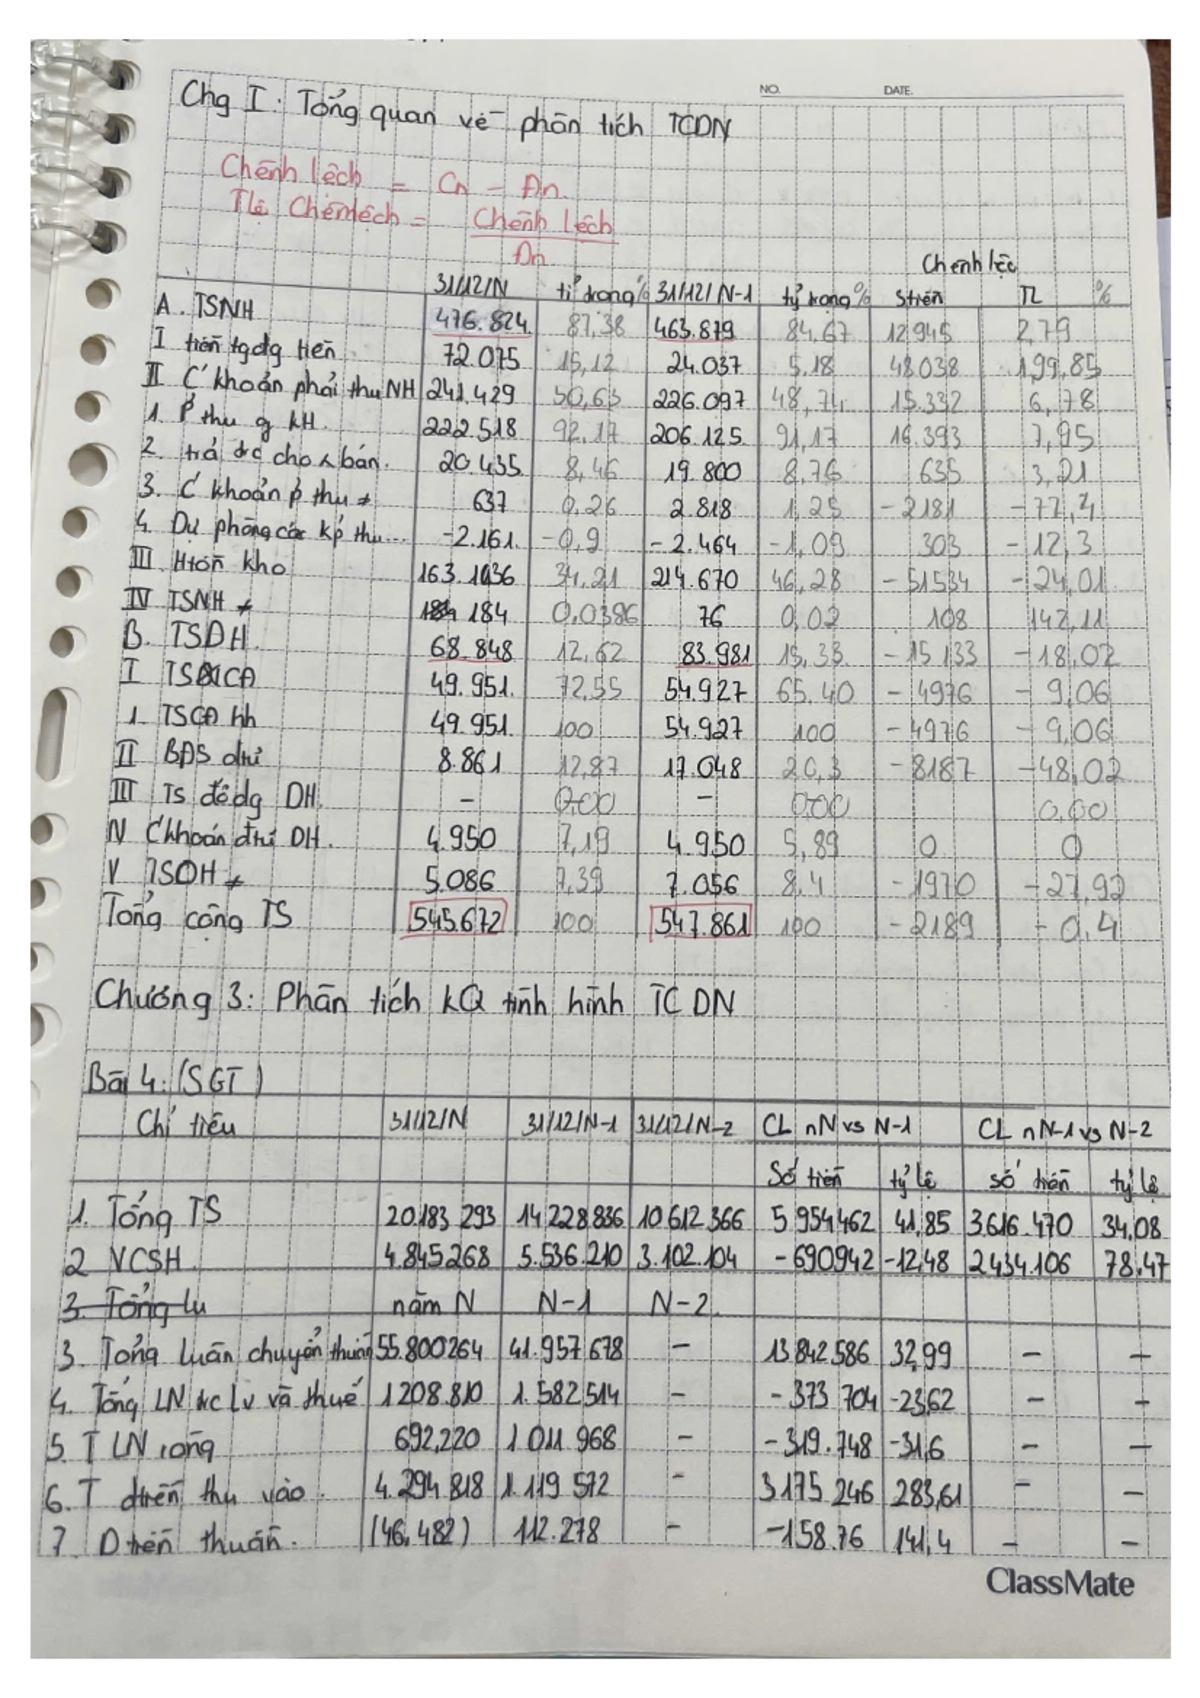 NO. DATE.
Chg I: Tổng quan về phân tích TCDN
Chênh lệch = Cn - Đn.
Tlệ Chênlệch = Chênh lệch
Đn
Chênh lệc
31/12/N tỉ trọng% 31/12/N-1 tỷ trọng% Stiền TL %
A. TSNH 476.824 87,38 463.879 84,67 12945 2,79
I tiền tgđg tiền 72.075 15,12 24.037 5,18 48038 199,85
II C' khoản phải thu NH 241.429 50,63 226.097 48,74 15.332 6,78
1. P thu of kH. 222.518 92,17 206.125 91,17 16.393 7,95
2. trả trc cho x bán. 20.435 8,46 19.800 8,76 635 3,21
3. C' khoản p thu ≠ 637 0,26 2.818 1,25 -2181 -77,4
4. Dự phòng các kp thu... -2.161 -0,9 -2.464 -1,09 303 -12,3
III Htồn kho 163.1036 34,21 214.670 46,28 -51534 -24,01
IV TSNH ≠ 184 0,0386 76 0,02 108 142,11
B. TSDH. 68.848 12,62 83.981 15,33 -15133 -18,02
I TSCĐ 49.951. 72,55 54.927 65.40 -4976 -9,06
1. TSCĐ hh 49.951. 100 54.927 100 -4976 -9,06
II BĐS đtư 8.861 12,87 17.048 20,3 -8187 -48,02
III Ts dở dg DH. - 0,00 - 0,00 0,00
IV C'khoản đtư DH. 4.950 7,19 4.950 5,89 0 0
V TSDH ≠ 5.086 7,39 7.056 8,4 -1970 -27,92
Tổng cộng TS 545.672 100 547.861 100 -2189 -0,4
Chương 3: Phân tích kQ tình hình TC DN
Bài 4: (SGT)
Chỉ tiêu 31/12/N 31/12/N-1 31/12/N-2 CL nN vs N-1 CL nN-1 vs N-2
Số tiền tỷ lệ số tiền tỷ lệ
1. Tổng TS 20.183 293 14 228.836 10 612.366 5 954462 41,85 3.616.470 34,08
2 VCSH. 4.845.268 5.536.210 3.102.104 -690942 -12,48 2434.106 78,47
3. Tổng lu năm N N-1 N-2.
3. Tổng luân chuyển thuần 55.800264 41.957.678 - 13.842.586 32,99 - -
4. Tổng LN trc lv và thuế 1208.810 1.582.514 - -373 704 -23,62 - -
5. T LN ròng 692,220 1 011 968 - -319.748 -31,6 - -
6. T dtiền thu vào. 4.294.818 1.119 572 - 3175 246 283,61 - -
7. D tiền thuần. (46,482) 112.278 - -158.76 141,4 - -
ClassMate